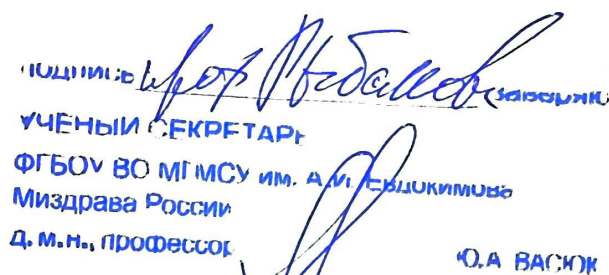 подпись проф Рыбакова заверяю
УЧЕНЫЙ СЕКРЕТАРЬ
ФГБОУ ВО МГМСУ им. А.И. Евдокимова
Миздрава России
д.м.н., профессор
Ю.А ВАСЮК